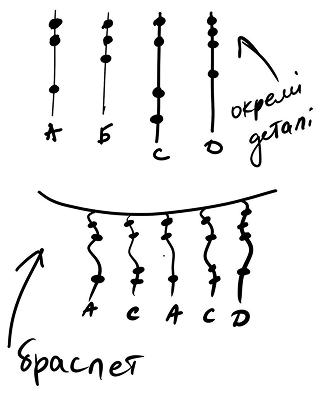 А Б С D
окремі
деталі
А С А С D
браслет